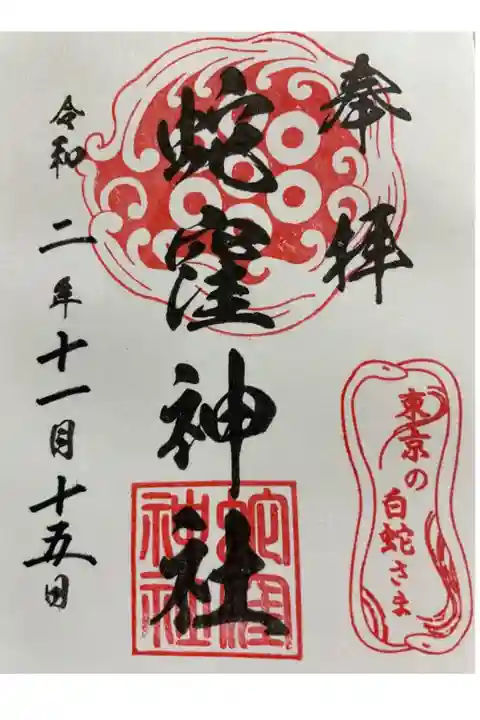 奉拝
蛇窪神社
蛇窪神社
東京の
白蛇さま
令和二年十一月十五日